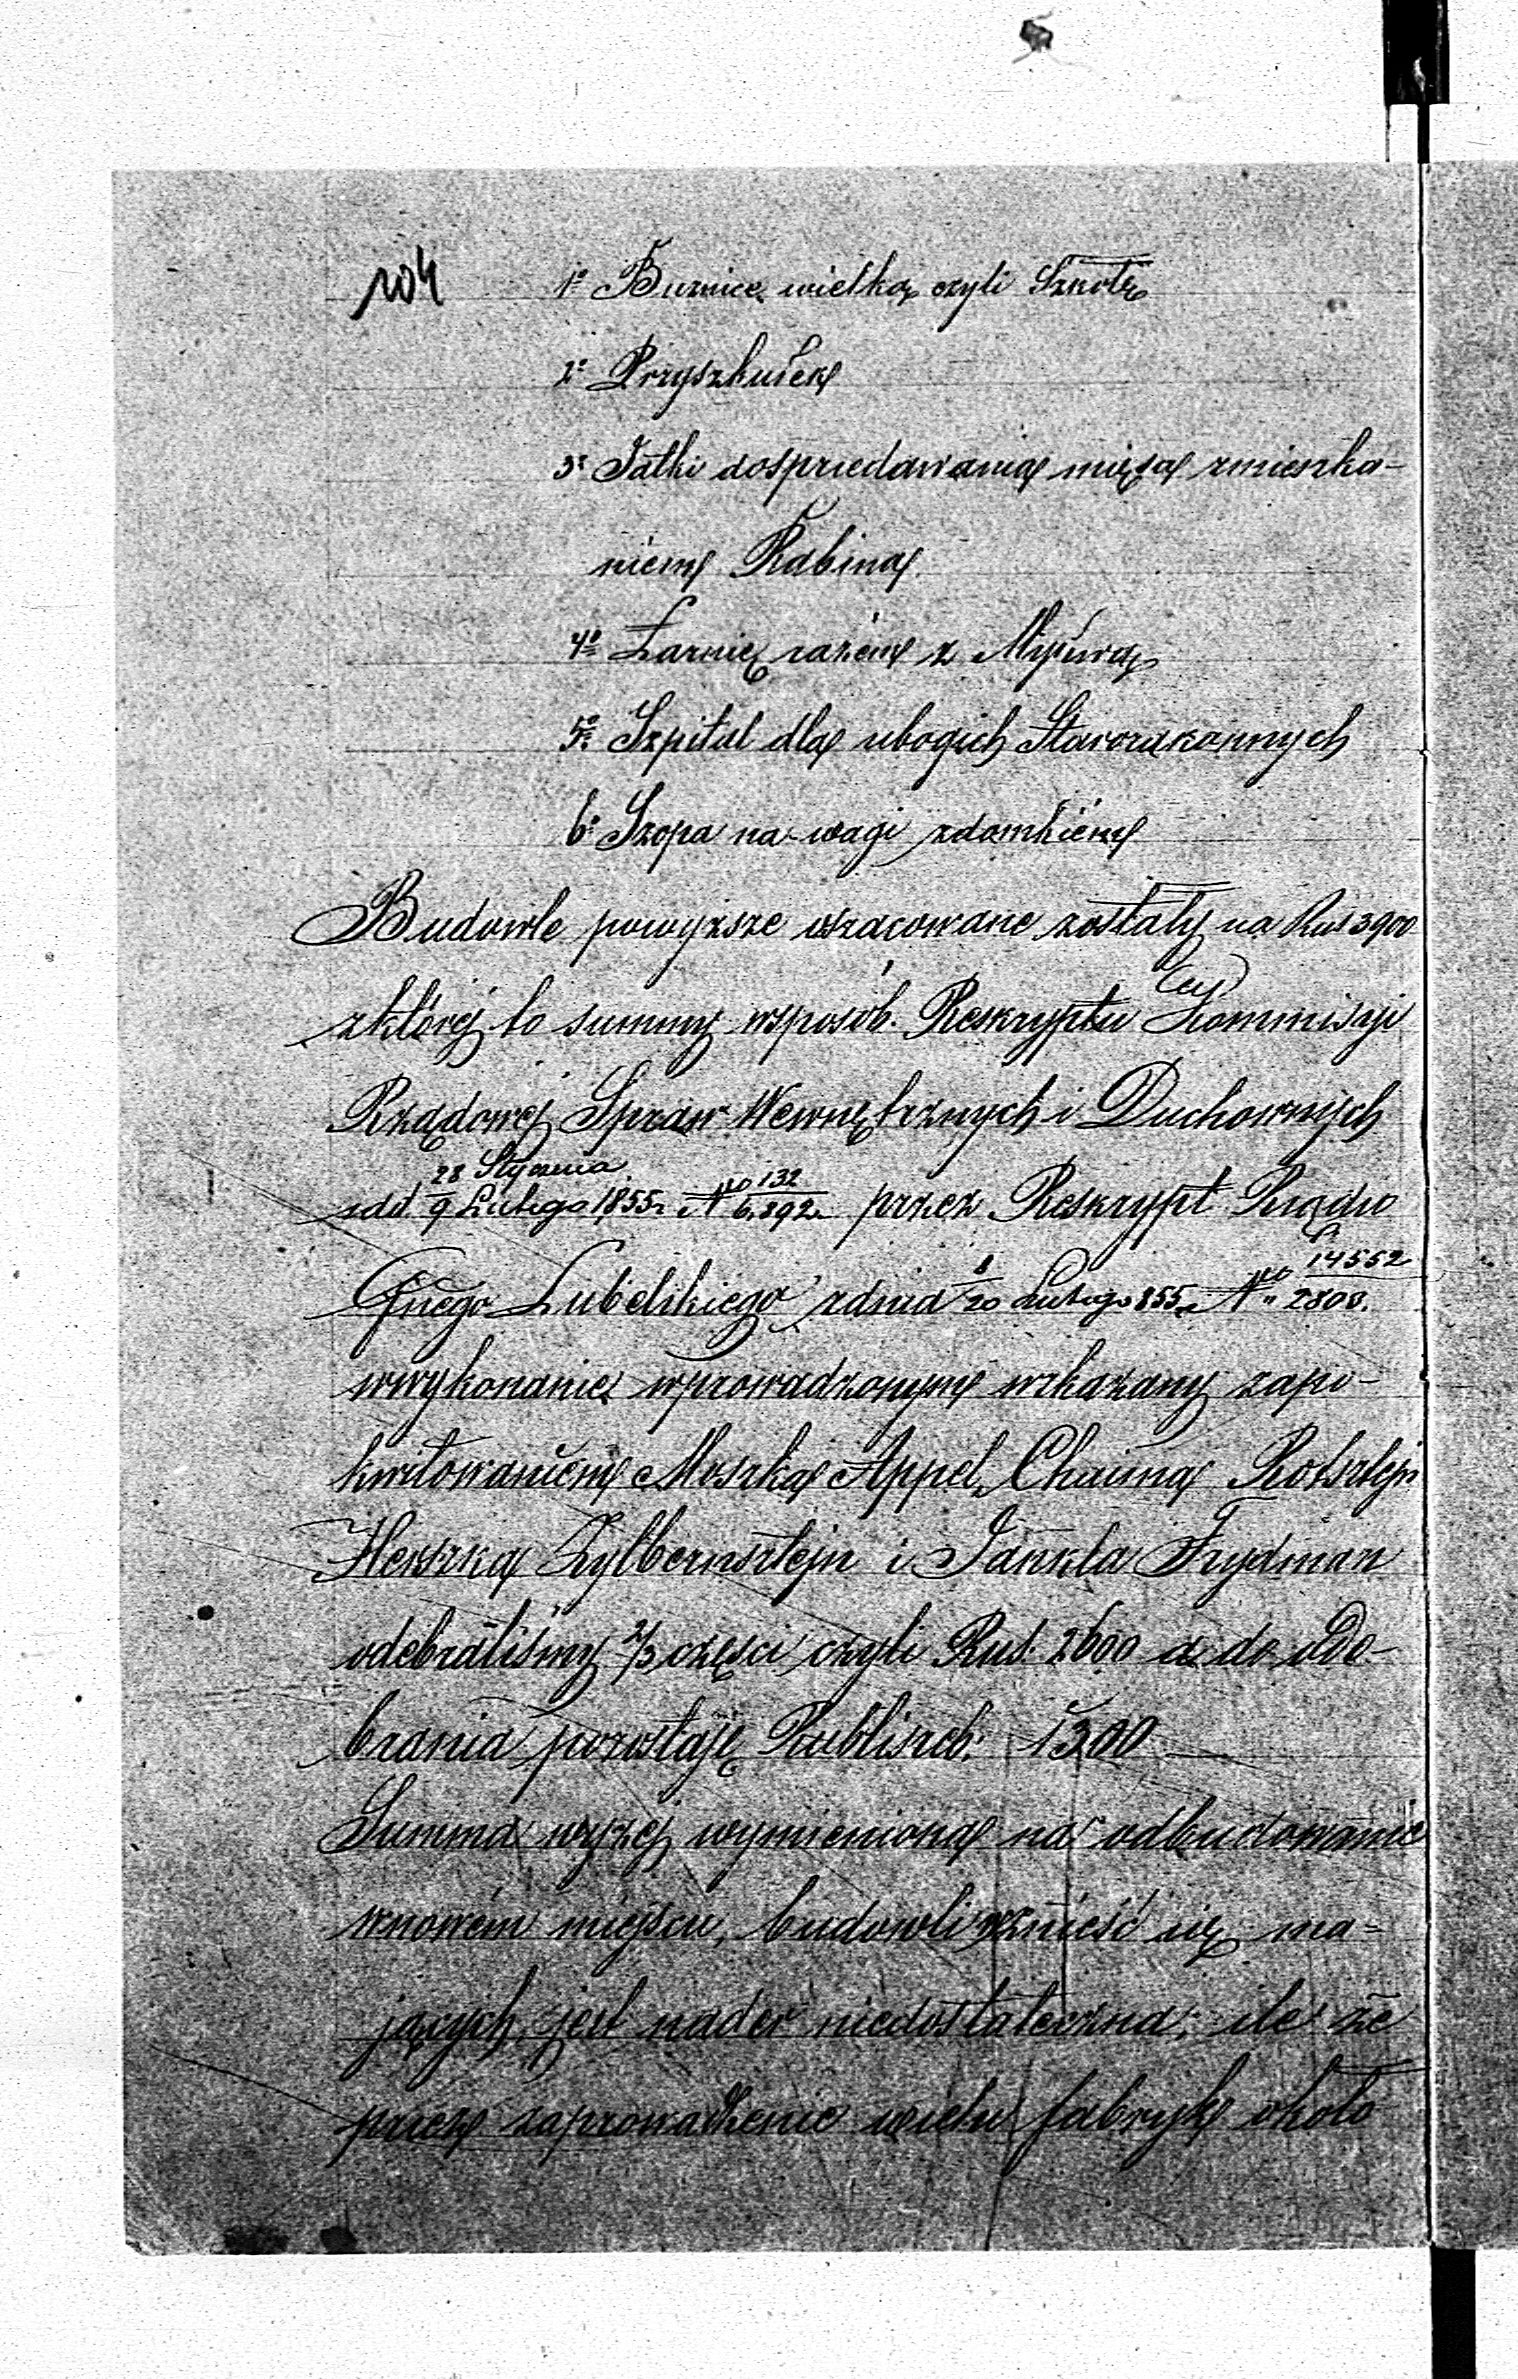 104
1º Buźnicę wielką czyli Szkołę
2º Przyszkułek
3º Jatki do sprzedawania mięsa z mieszka-
niem Rabina
4º Łaznię razem z Mykwą
5º Szpital dla ubogich Starozakonnych
6º Szopa na wagi z domkiem
Budowle powyższe oszacowane zostały na Rus 3900
z której to summy w sposób Reskryptu Kommissyi
cej
Rządowej Spraw Wewnętrznych i Duchownych
z dd 28 Stycznia / 9 Lutego 1855 r. No 132 / 6,892 przez Reskrypt Rządu
Gnego Lubelskiego z dnia 8/20 Lutego 855 r. No 14552 / 2808.
w wykonanie wprowadzonym wskazany za po-
kwitowaniem Moszka Appel, Chaima Rotsztejn
Herszka Zylbersztejn i Jankla Frydman
odebraliśmy 2/3 części czyli Rus. 2600 a do ode-
brania pozostaje Rubli sreb: 1300
Summa wyżej wymieniona na odbudowanie
w nowém miejscu, budowli znieść się ma-
jących, jest nader niedostateczna; ile że
przez zaprowadzenie wielu fabryk około